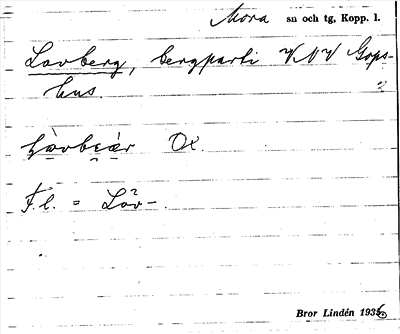 Mora sn och tg, Kopp. l.
Lovberg, bergparti VNV Gops-
hus.
Ox.
F.l. = Lov-.
Bror Lindén 1935